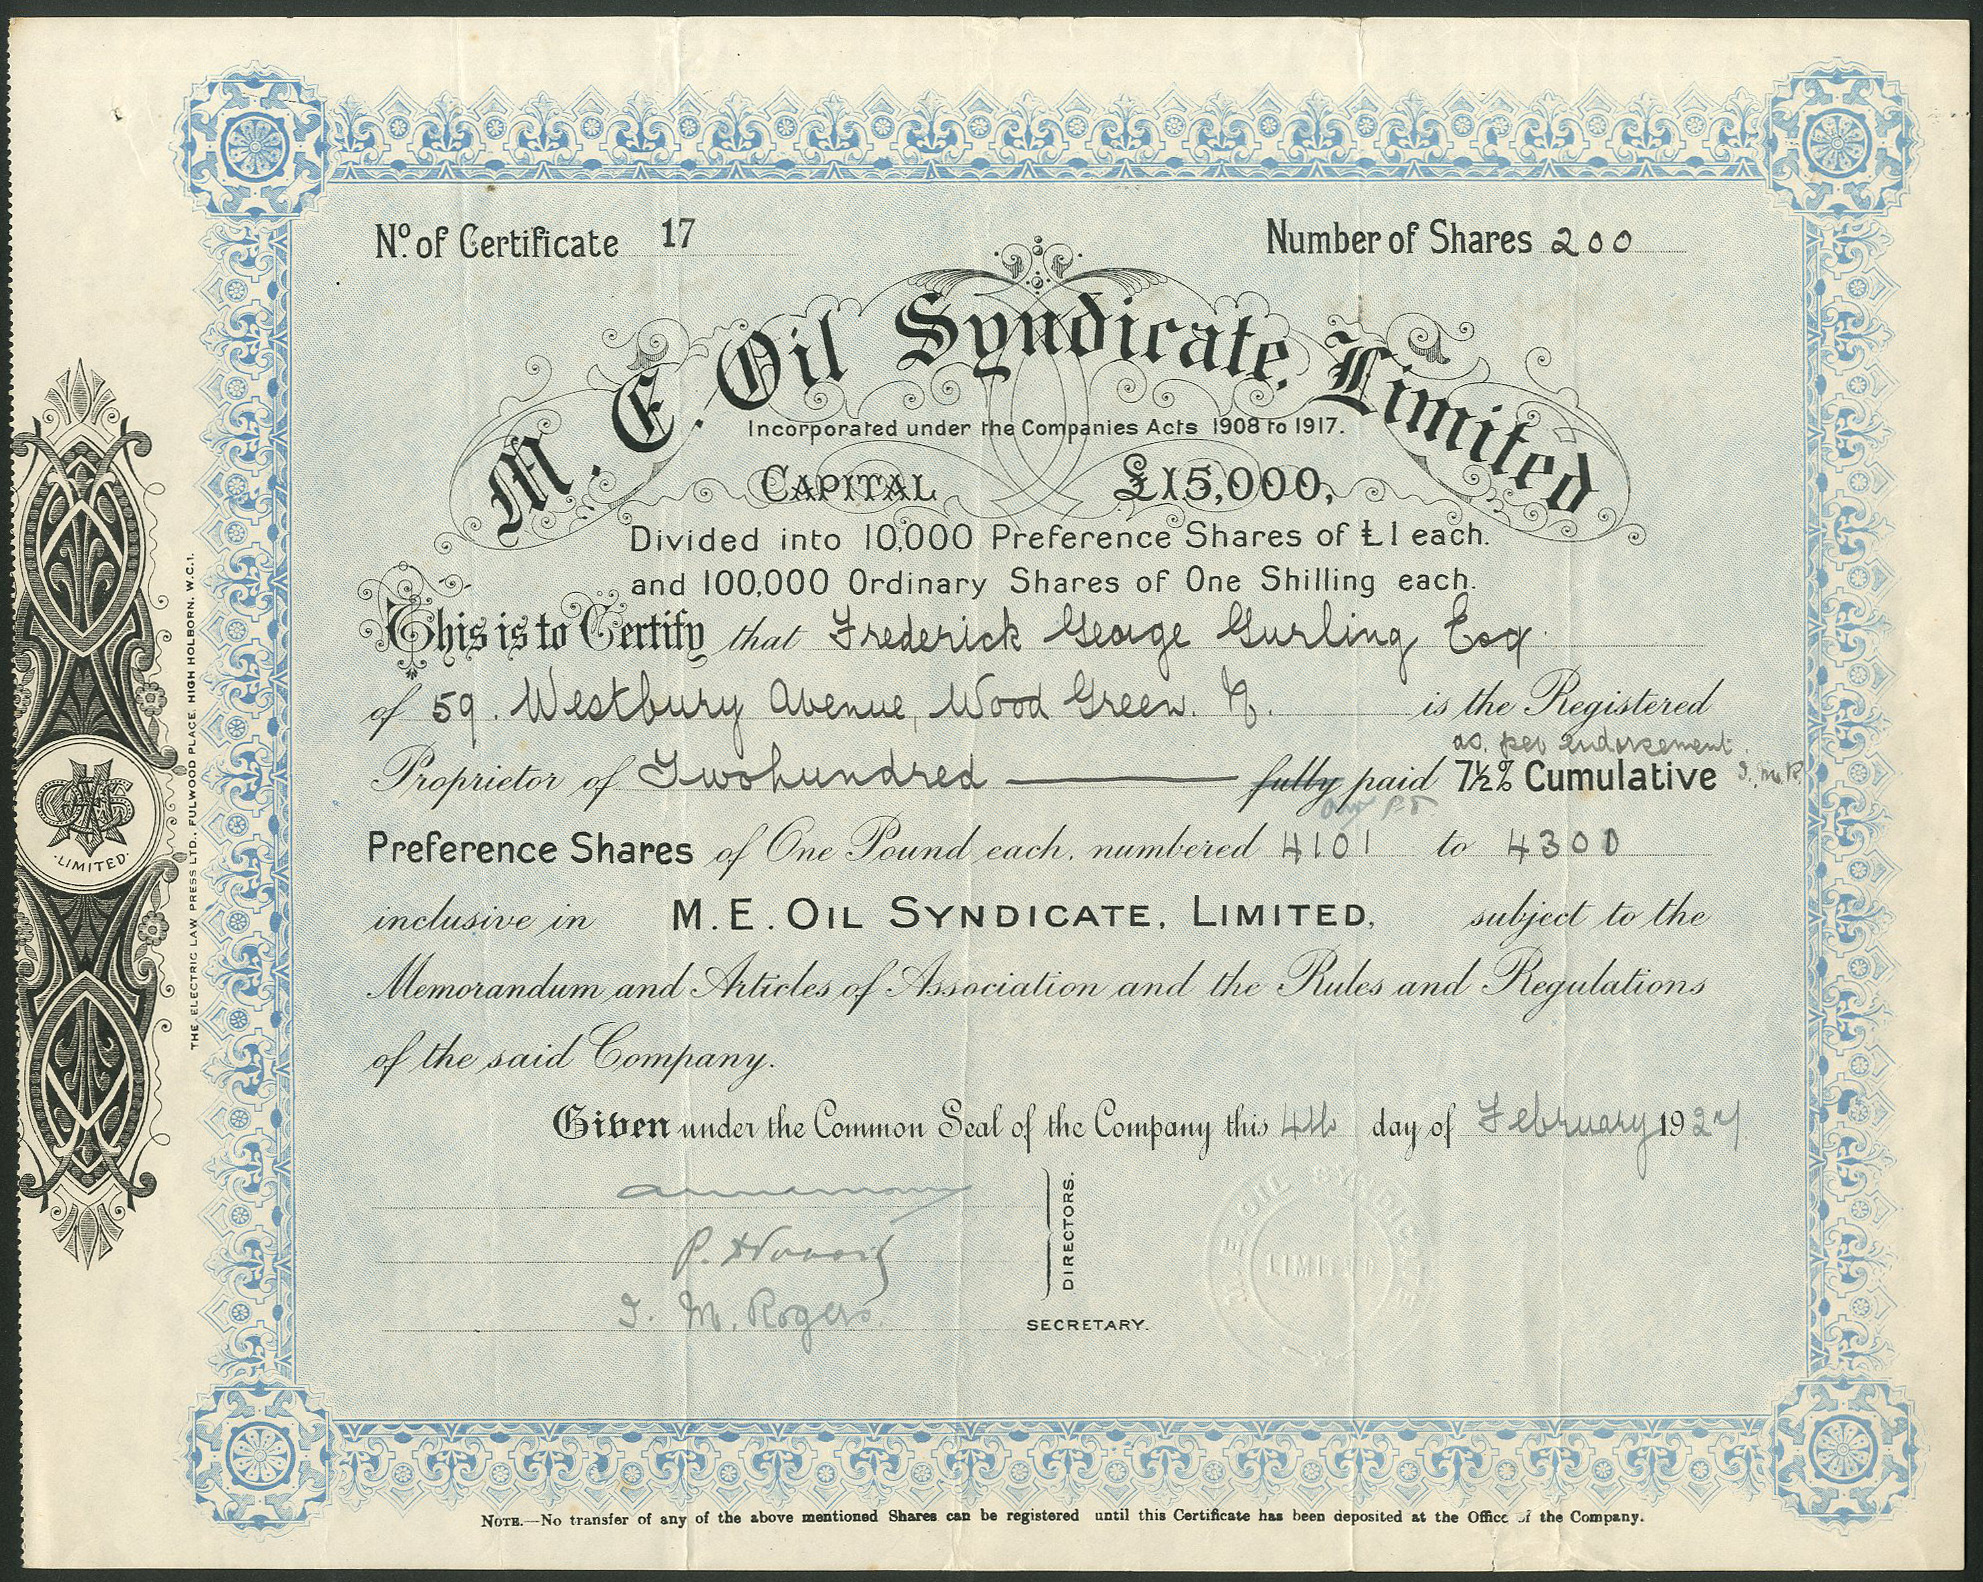 No. of Certificate 17
Number of Shares 200
M. E. Oil Syndicate, Limited
Incorporated under the Companies Acts 1908 to 1917.
CAPITAL £15,000,
Divided into 10,000 Preference Shares of £1 each.
and 100,000 Ordinary Shares of One Shilling each.
This is to Certify that Frederick George Gurling Esq.
of 59. Westbury Avenue, Wood Green. N. is the Registered
as per endorsement.
Proprietor of Twohundred fully paid 7½% Cumulative I. M. R.
Preference Shares of One Pound each, numbered 4101 to 4300
inclusive in M. E. OIL SYNDICATE, LIMITED, subject to the
Memorandum and Articles of Association and the Rules and Regulations
of the said Company.
Given under the Common Seal of the Company this 4th day of February 1927
DIRECTORS.
I. M. Rogers. SECRETARY.
M. E. OIL SYNDICATE
LIMITED
NOTE.—No transfer of any of the above mentioned Shares can be registered until this Certificate has been deposited at the Office of the Company.
LIMITED.
THE ELECTRIC LAW PRESS LTD., FULWOOD PLACE, HIGH HOLBORN, W.C.1.